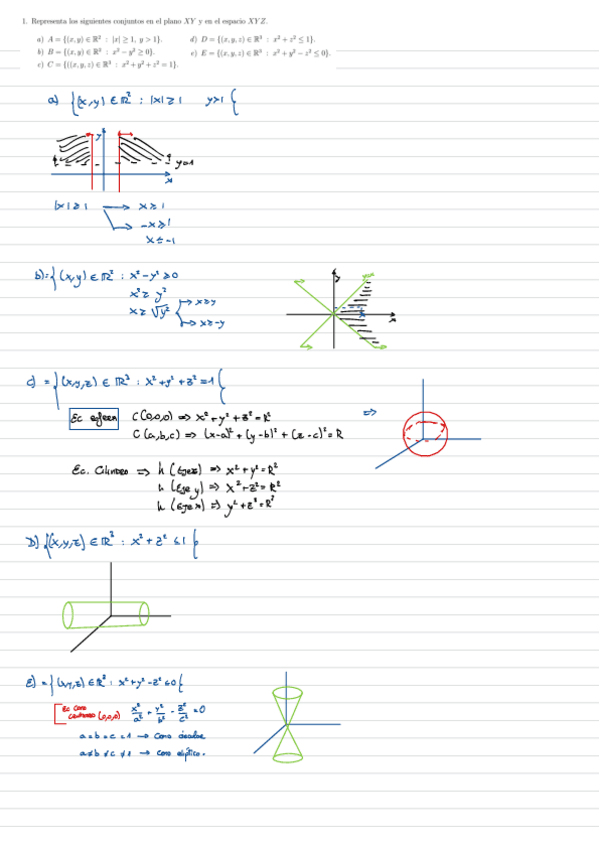 1. Representa los siguientes conjuntos en el plano XY y en el espacio XYZ.
a) A = {(x, y) ∈ ℝ² : |x| ≥ 1, y > 1}.
d) D = {(x, y, z) ∈ ℝ³ : x² + z² ≤ 1}.
b) B = {(x, y) ∈ ℝ² : x² − y² ≥ 0}.
e) E = {(x, y, z) ∈ ℝ³ : x² + y² − z² ≤ 0}.
c) C = {((x, y, z) ∈ ℝ³ : x² + y² + z² = 1}.
a) {(x,y) ∈ ℝ² : |x| ≥ 1 y>1 {
y
y=1
x
|x| ≥ 1 → x ≥ 1
→ -x ≥ 1
x ≤ -1
b) = {(x,y) ∈ ℝ² : x² - y² ≥ 0
x² ≥ y²
x ≥ √y² → x ≥ y
→ x ≥ -y
y
x
c) = {(x,y,z) ∈ ℝ³ : x² + y² + z² = 1 {
Ec esfera C(0,0,0) => x² + y² + z² = R² =>
C(a,b,c) => (x-a)² + (y-b)² + (z-c)² = R
Ec. Cilindro => h (Eje z) => x² + y² = R²
h (Eje y) => x² + z² = R²
h (Eje x) => y² + z² = R²
D) {(x,y,z) ∈ ℝ³ : x² + z² ≤ 1 {
E) = {(x,y,z) ∈ ℝ³ : x² + y² - z² ≤ 0 {
Ec Cono
centrado (0,0,0) x²/a² + y²/b² - z²/c² = 0
a = b = c = 1 → Cono circular
a ≠ b ≠ c ≠ 1 → Cono elíptico.